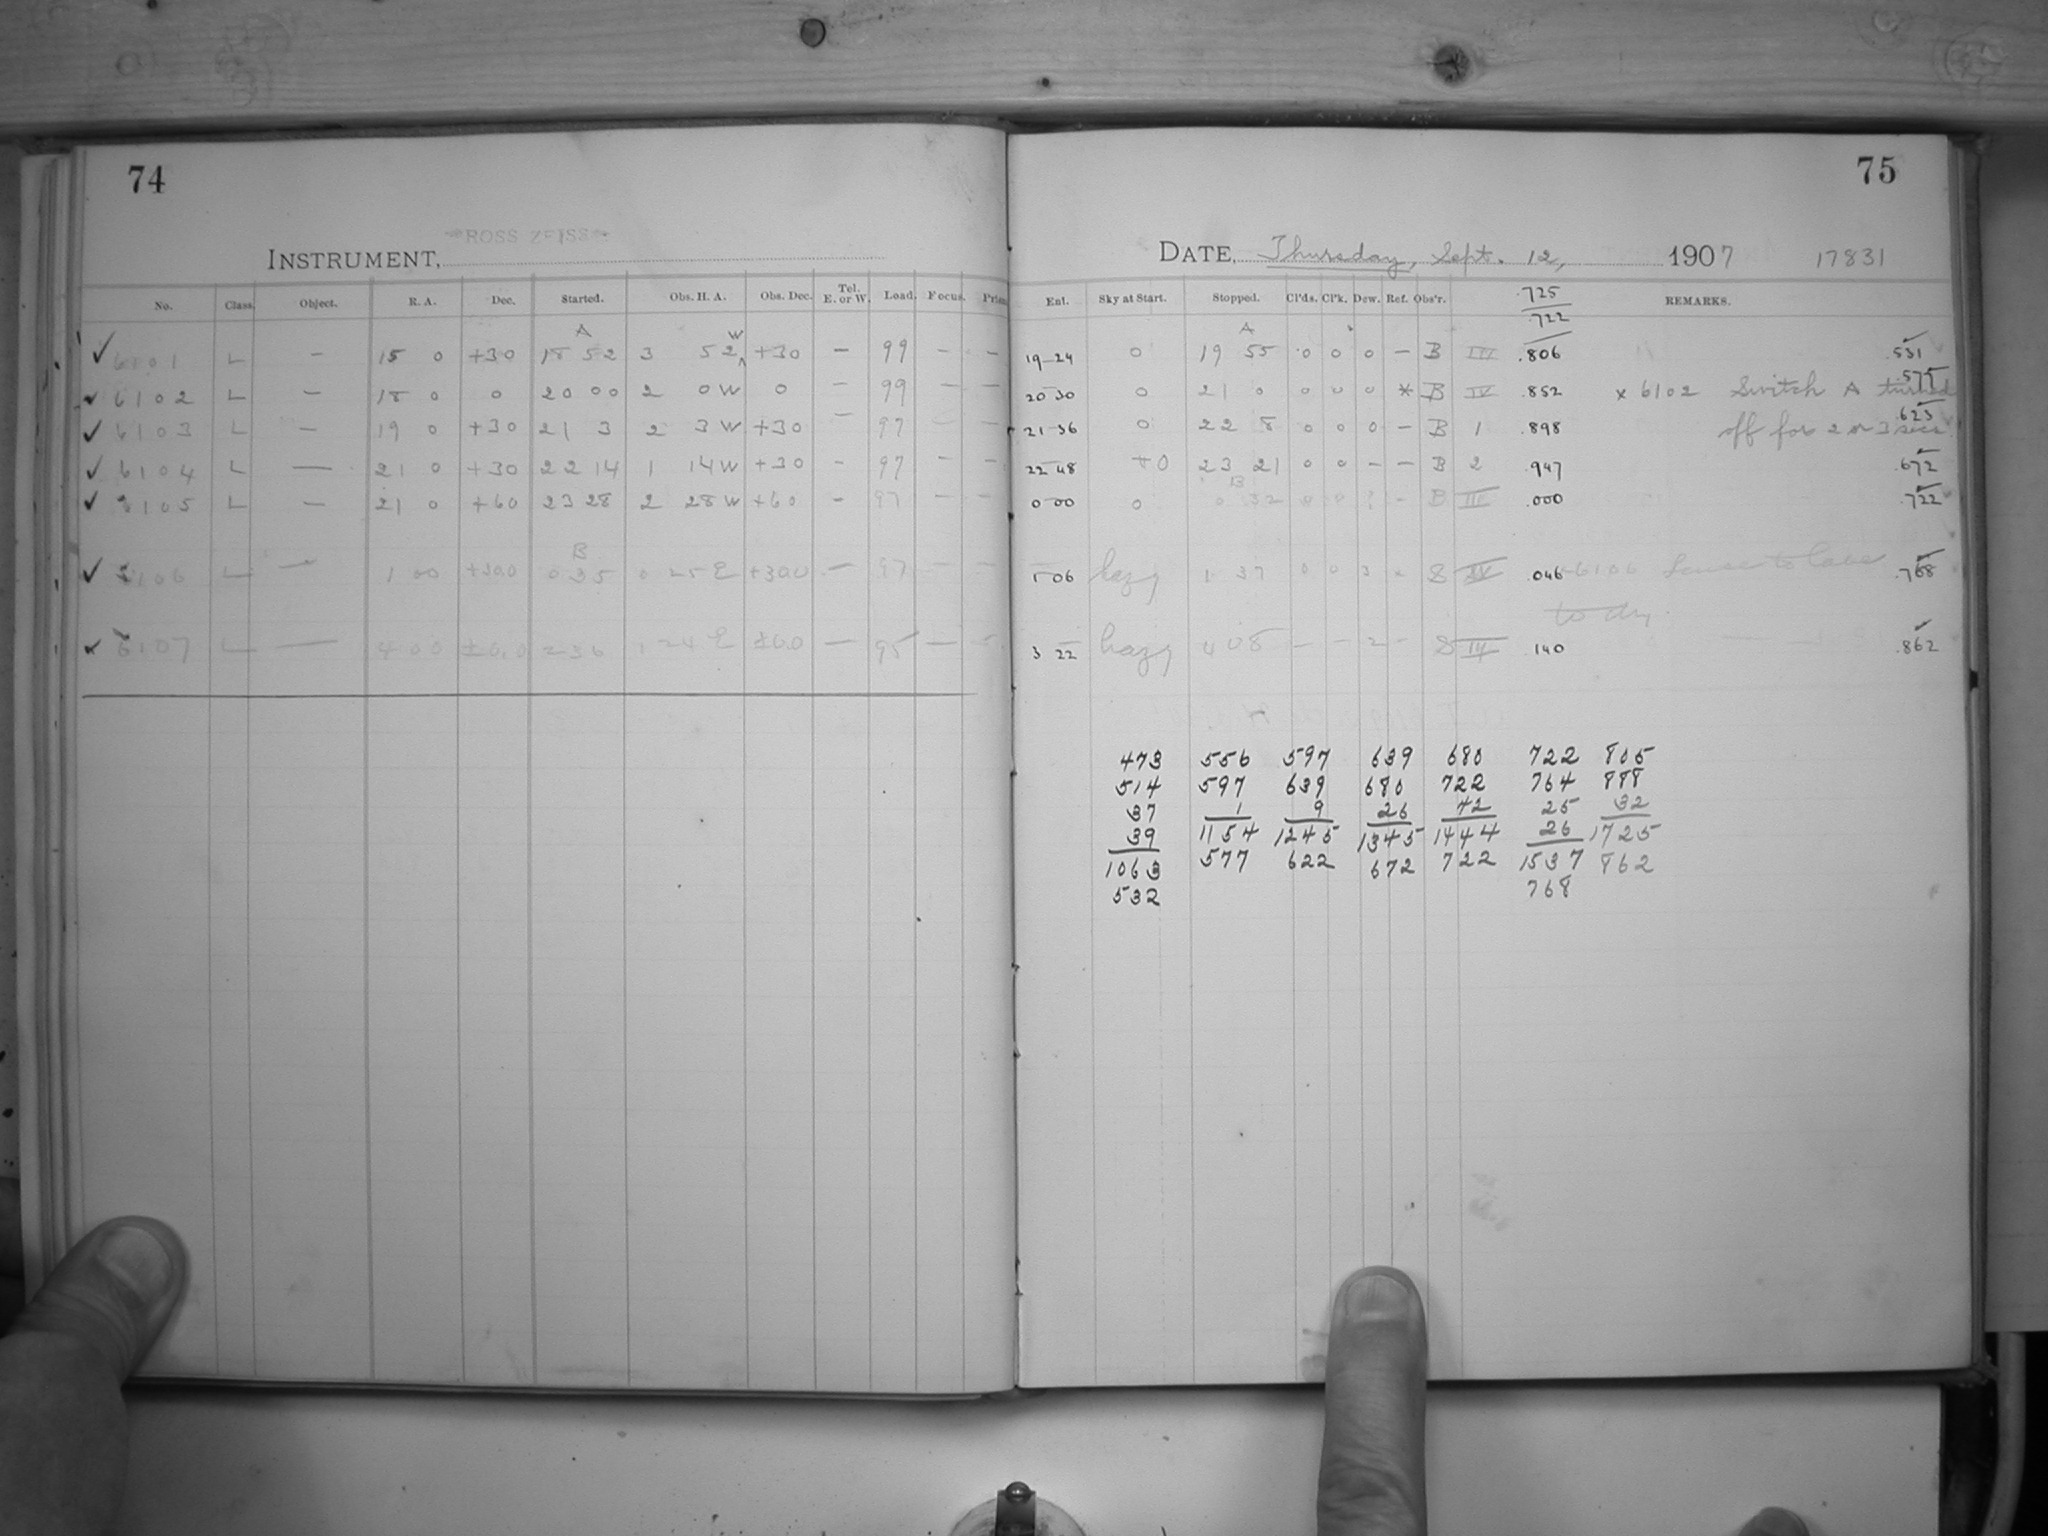 74
ROSS ZEISS
INSTRUMENT,
No. Class. Object. R. A. Dec. Started. Obs. H. A. Obs. Dec. Tel. E. or W. Load. Focus.
A W
✓ 6101 L – 15 0 +30 18 52 3 52 ^ +30 – 99 – –
✓ 6102 L – 18 0 0 20 00 2 0W 0 – 99 – –
✓ 6103 L – 19 0 +30 21 3 2 3W +30 – 97 – –
✓ 6104 L — 21 0 +30 22 14 1 14W +30 – 97 – –
✓ 6105 L – 21 0 +60 23 28 2 28W +60 – 97 – –
B
✓ 6106 L – 1 00 +30.0 0 35 0 25 E +30.0 – 97 – –
6107 L — 4 00 ±0.0 2 36 1 24 E ±0.0 – 95 –
75
DATE, Thursday, Sept. 12, 1907 17831
Ent. Sky at Start. Stopped. Cl'ds. Cl'k. Dew. Ref. Obs'r. REMARKS.
.725
.722
A
19 24 0 19 55 0 0 0 – B III .806 .531
20 30 0 21 0 0 0 0 * B IV .852 x 6102 Switch A turned .577
21 36 0 22 8 0 0 0 – B 1 .898 off for 2 or 3 secs. .623
22 48 0 23 21 0 0 – – B 2 .947 .672
B
0 00 0 0 32 0 0 – B III .000 .722
1 06 hazy 1 37 0 0 3 S IV .046 6106 .768
to dry
3 22 hazy 4 08 – – 2 – S III .140 .862
473 556 597 639 680 722 805
514 597 639 680 722 764 888
37 1 9 26 42 25 32
39 1154 1245 1345 1444 26 1725
1063 577 622 672 722 1537 862
532 768